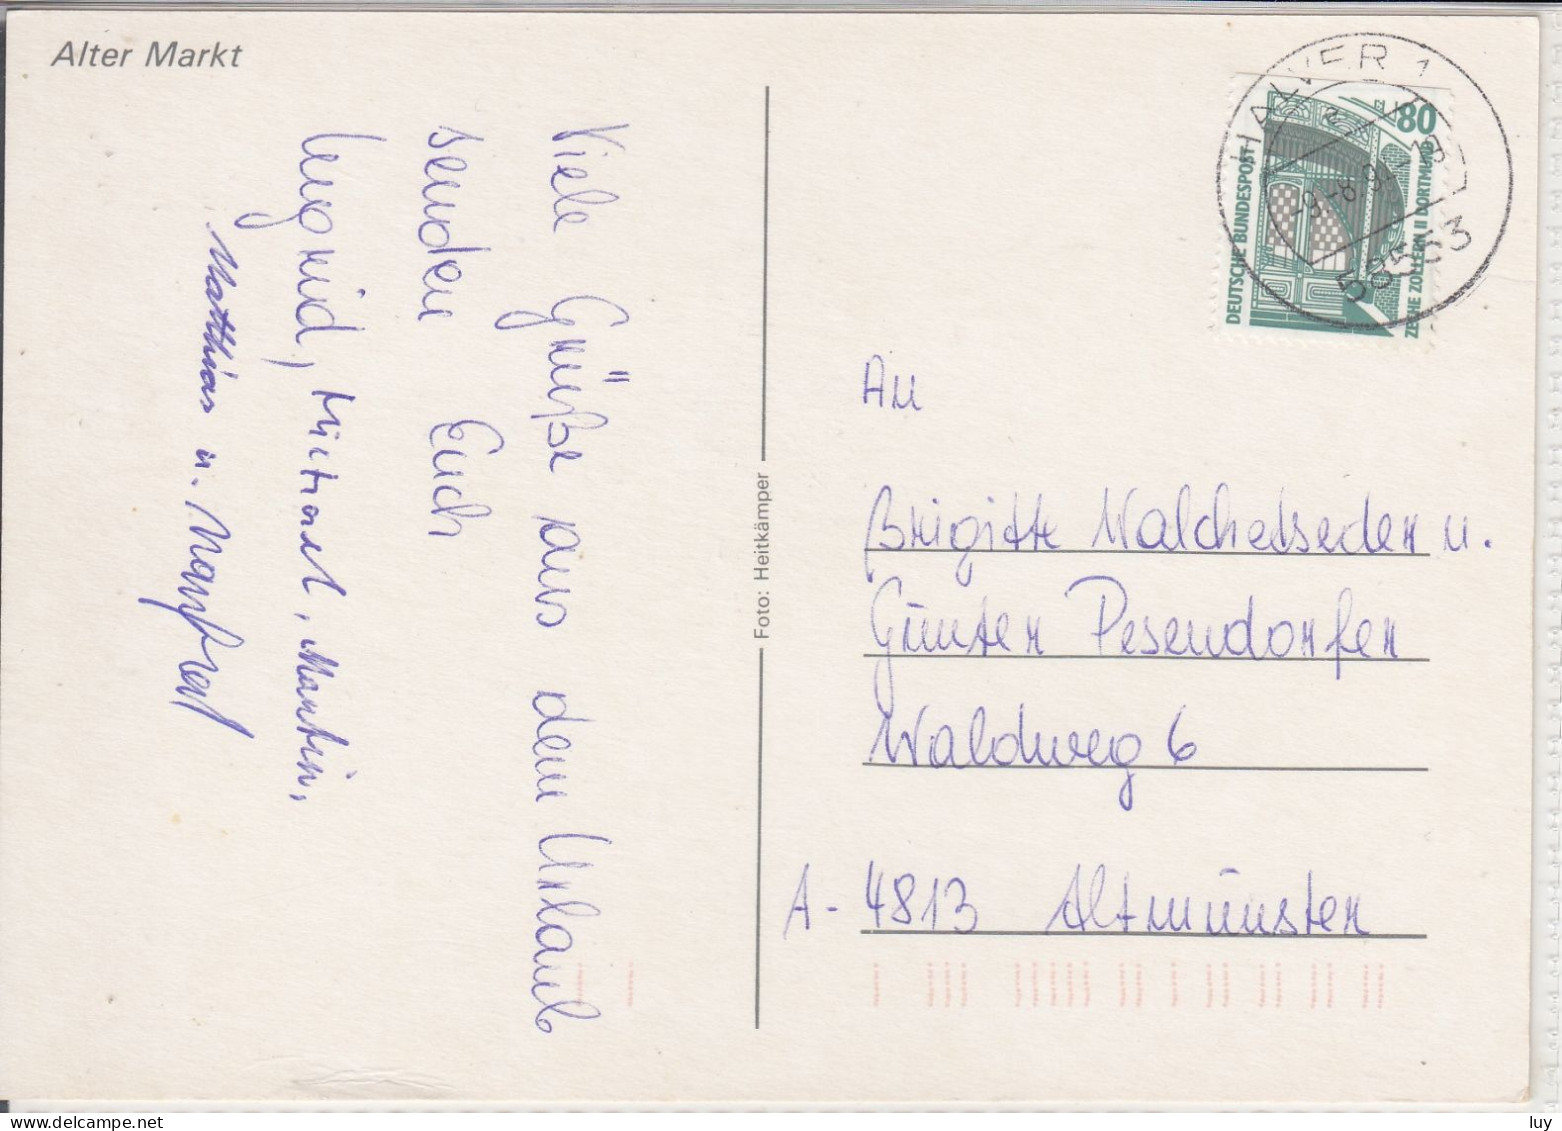 Alter Markt
Viele Grüße aus dem Urlaub
senden Euch
Ingrid, Michael, Martin,
Matthias u. Manfred
Foto: Heitkämper
HALVER 1
58553
80
DEUTSCHE BUNDESPOST
ZECHE ZOLLERN II DORTMUND
An
Brigitte Walchetseder u.
Günter Pesendorfer
Waldweg 6
A - 4813 Altmünster
www.delcampe.net
luy